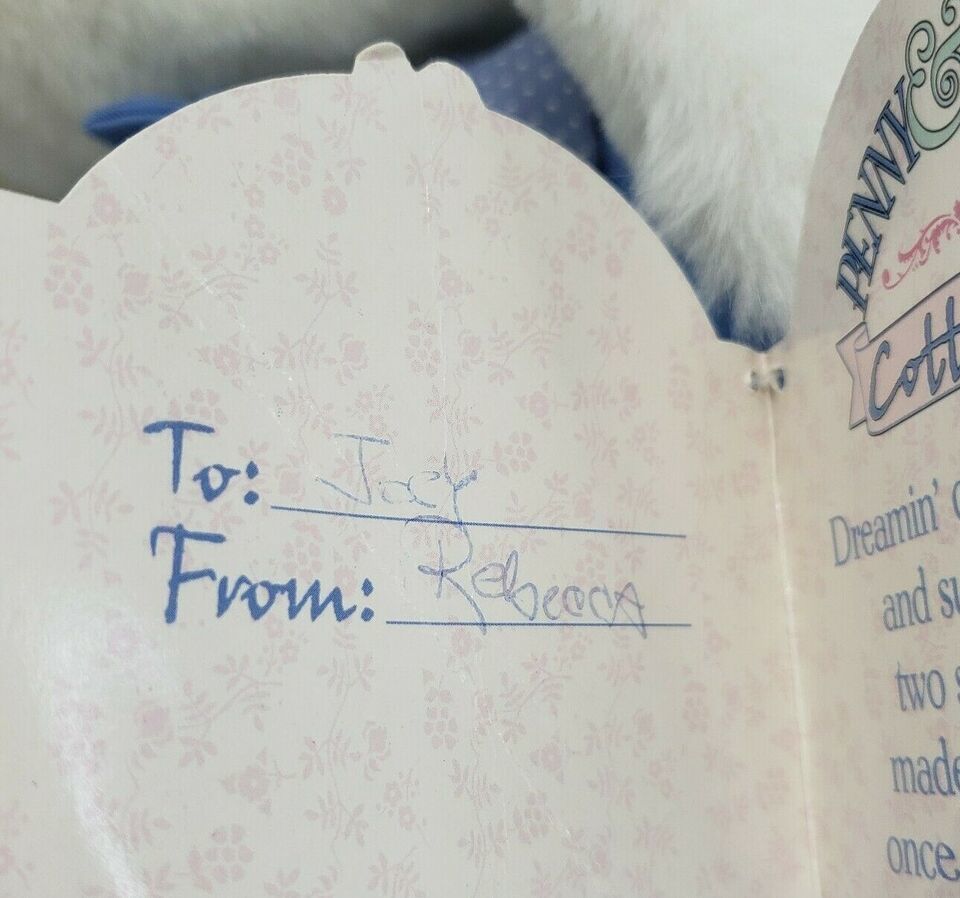 To: Joey
From: Rebecca
PENNY &
Cott
Dreamin'
and su
two s
made
once